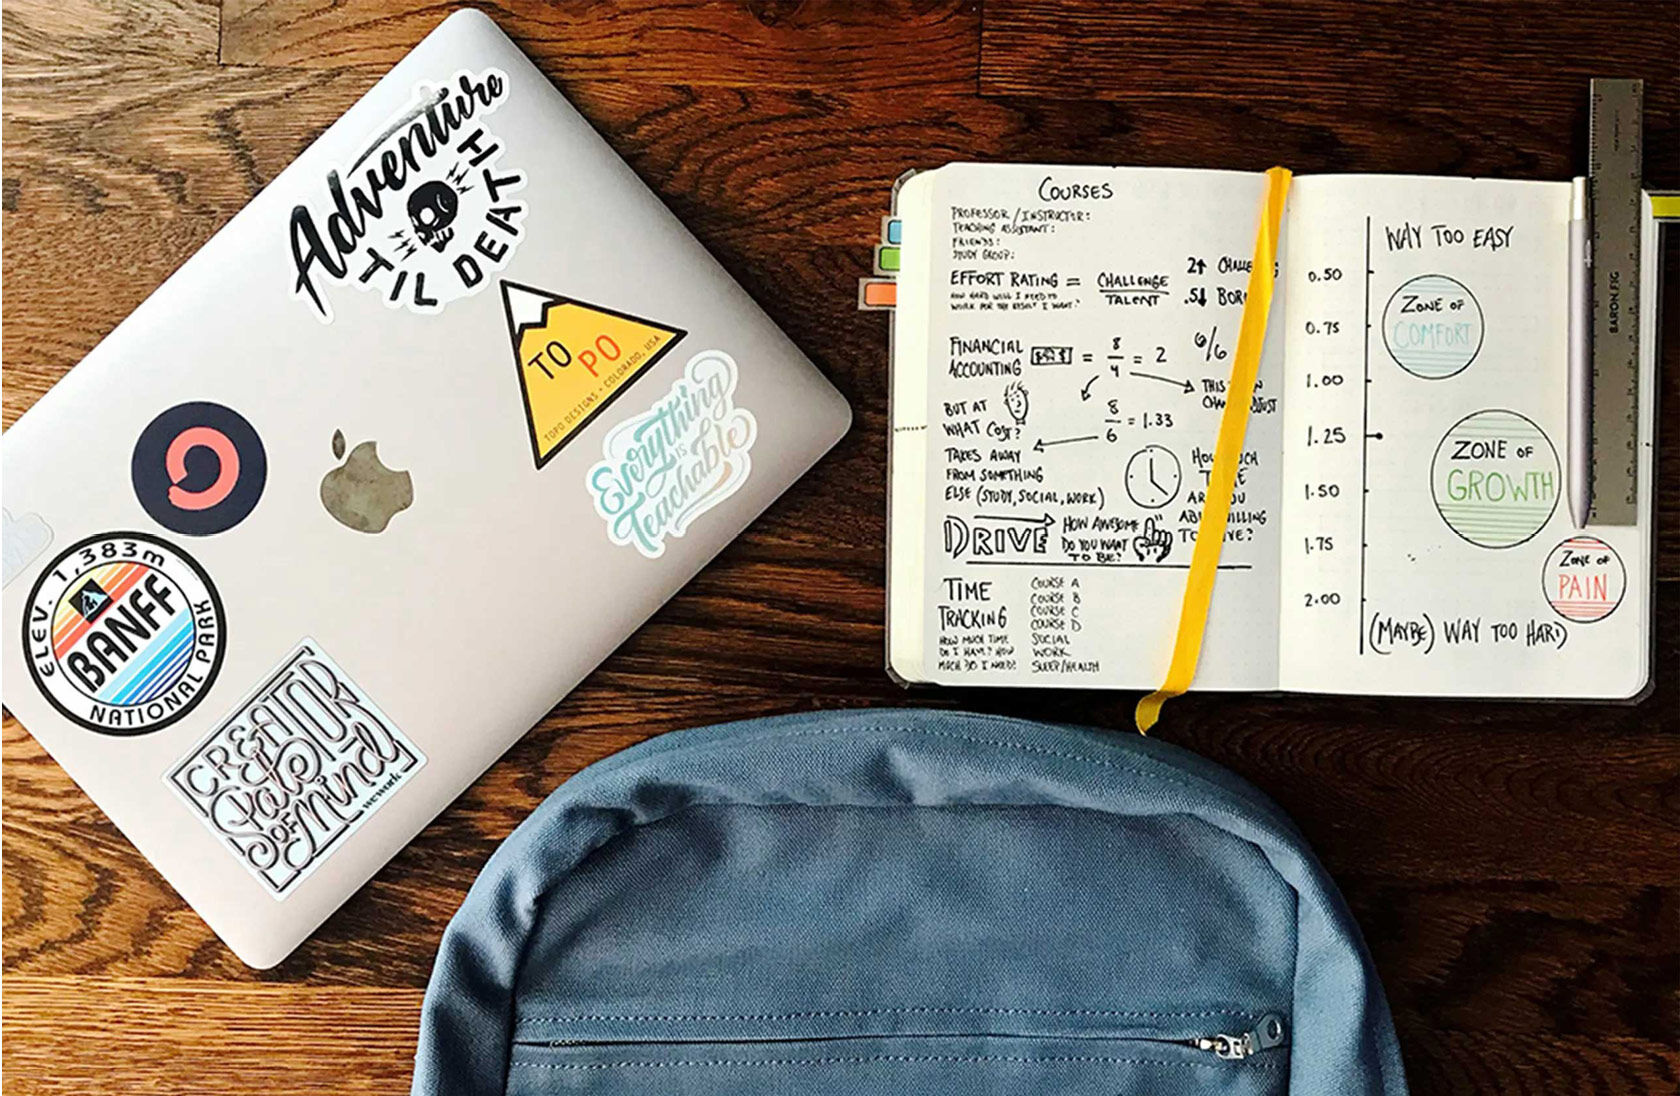 Adventure
TIL DEATH
TO PO
TOPO DESIGNS • COLORADO, USA
Everything
IS
Teachable
ELEV. 1,383m
BANFF
NATIONAL PARK
CREATOR
State
OF
Mind
wework
COURSES
PROFESSOR / INSTRUCTOR:
TEACHING ASSISTANT:
FRIENDS:
STUDY GROUP:
EFFORT RATING = CHALLENGE
TALENT
HOW HARD WILL I NEED TO
WORK FOR THE RESULT I WANT?
2↑
.5↓
FINANCIAL
ACCOUNTING
= 8/4 = 2
6/6
THIS
8/6 = 1.33
BUT AT
WHAT COST?
TAKES AWAY
FROM SOMETHING
ELSE (STUDY, SOCIAL, WORK)
DRIVE
HOW AWESOME
DO YOU WANT
TO BE?
TIME
TRACKING
HOW MUCH TIME
DO I HAVE? HOW
MUCH DO I NEED?
COURSE A
COURSE B
COURSE C
COURSE D
SOCIAL
WORK
SLEEP/HEALTH
WAY TOO EASY
0.50
ZONE OF
COMFORT
0.75
1.00
1.25
ZONE OF
GROWTH
1.50
1.75
ZONE OF
PAIN
2.00
(MAYBE) WAY TOO HARD
BARON FIG